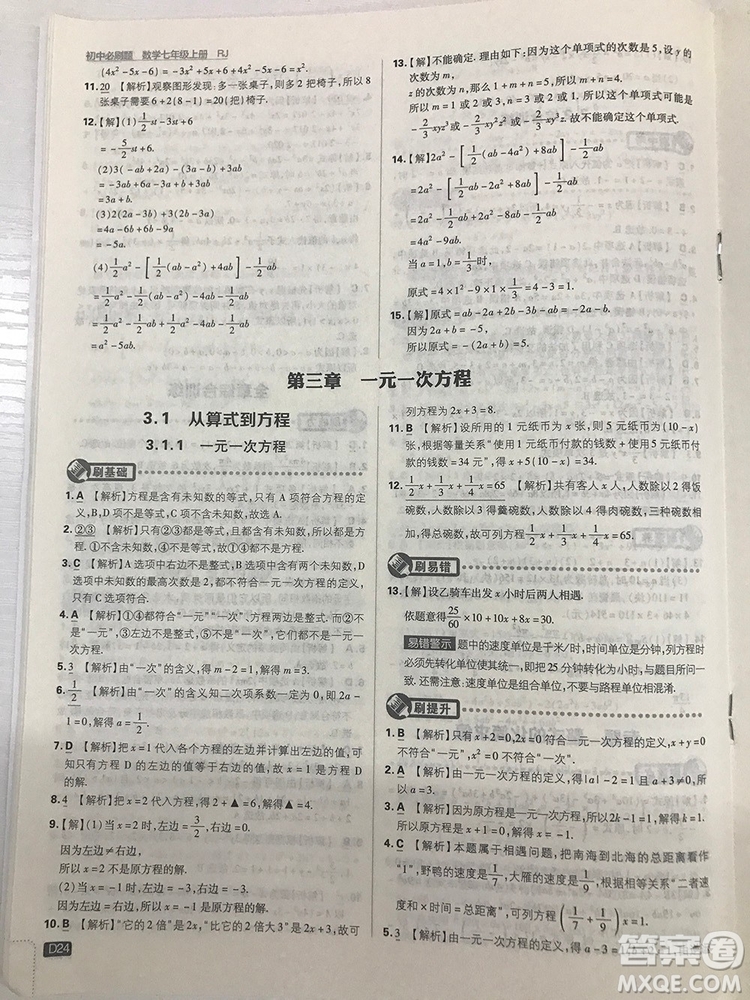 初中必刷题 数学七年级上册 RJ
(4x²-5x-6)=-3x²+5x+6+4x²-5x-6=x².
11. 20 【解析】观察图形发现:多一张桌子,多放2把椅子,所以8
张桌子需要6+2(8-1)=20(把)椅子.
12.【解】(1)1/2st-3st+6
=-5/2st+6.
(2)3(-ab+2a)-(3a-b)+3ab
=-3ab+6a-3a+b+3ab
=3a+b.
(3)2(2a-3b)+3(2b-3a)
=4a-6b+6b-9a
=-5a.
(4)1/2a²-[1/2(ab-a²)+4ab]-1/2ab
=1/2a²-1/2ab+1/2a²-4ab-1/2ab
=a²-5ab.
13.【解】不能确定.因为这个单项式的次数是5,设y的
次数为m,
z的次数为n,所以1+m+n=5,所以m+n=4,
所以m=1,n=3或m=2,n=2或m=3,n=1,所以这个单项式可能是
-2/3xyz³或-2/3xy²z²或-2/3xy³z.故不能确定.
14.【解】2a²-[1/2(ab-4a²)+8ab]-1/2ab
=2a²-[1/2ab-2a²+8ab]-1/2ab
=2a²-1/2ab+2a²-8ab-1/2ab
=4a²-9ab.
当a=1,b=1/3时,
原式=4×1²-9×1×1/3=4-3=1.
15.【解】原式=ab-2a+2b-3b-ab=-2a-b.
因为2a+b=-5,
所以原式=-(2a+b)=5.
第三章 一元一次方程
3.1 从算式到方程
3.1.1 一元一次方程
刷基础
1. A 【解析】方程是含有未知数的等式,只有A项符合方程的定
义,B,D不含未知数,C不是等式,故选A.
2. ②③ 【解析】②③含有未知数,且都含有未知数的等式,所以都是
方程.①不含未知数,故①不是方程;④不是等式,故④不是方程.
3. C 【解析】A选项中右边不是整式,B选项中含有两个未知数,D
选项中未知数的最高次数是2,只有C符合一元一次方程的定义,
故选C.
4. A 【解析】①④都符合“一元”“一次”、方程两边是整式.而②不
是“一次”,③左边不是整式,⑤不是“一元”,它们都不是一元一
次方程.
5. 3 【解析】由“一次”的含义,得m-2=1,解得m=3.
6. 1/2 【解析】由“一次”的含义知二次项系数一定为0,即2a-
1=0,解得a=1/2.
7. D 【解析】把x=1代入各个方程的左边并计算出结果,可
知只有方程D的左边的值等于右边的值,所以x=1是方程
D的解.
8. 4 【解析】把x=2代入方程,得2+▲=6,解得▲=4.
9.【解】(1)当x=2时,左边=3/2,右边=3.
因为左边≠右边,
所以x=2不是原方程的解.
(2)当x=-1时,左边=-3,右边=-3.
因为左边=右边,
所以x=-1是原方程的解.
10. B 【解析】“它的2倍”是“2x”,“比它的2倍大3”是2x+3,故可
列方程2x+3=8.
11. B 【解析】设所用的1元纸币为x张,则5元纸币为(10-x)
张.根据等量关系“1元纸币付款的钱数+5元纸币付款的钱
数=34元”,得x+5(10-x)=34.
12. 1/2x+1/3x+1/4x=65 【解析】共有客人x人,人数除以2得饭
碗数,人数除以3得羹碗数,人数除以4得肉碗数,三种碗数相
加得总碗数,所以可得方程1/2x+1/3x+1/4x=65.
刷易错
13.【解】设乙骑车出发x小时后两人相遇.
依题意得25/60×10+10x+8x=30.
易错警示 题中的速度单位是千米/时,时间单位是分钟,列方程时
必须先转化单位使其统一,即把25分钟转化为小时,与题目的问一
致.还需注意:速度的单位是组合单位,不要与路程单位相混淆.
刷提升
1. B 【解析】只有x+2=0,2x=0符合一元一次方程的定义,x+y=0
是“二元”,x²=0是“二次”.
2. A 【解析】根据一元一次方程的定义,得|a|-2=1且a+3≠0,所
以a=3.
3. A 【解析】因为原方程是一元一次方程,所以2k-1=1,解得k=1,
所以原方程是x+1=0,解得x=-1.
4. C 【解析】本题属于相遇问题,把南海到北海的总距离看成
“1”,野鸭的速度是1/7,大雁的速度是1/9,根据相等关系“二者速
度和×时间=总距离”,可列方程为(1/7+1/9)x=1.
5. 3 【解析】由一元一次方程的定义,得a-3=
D24
答案圈
MXQE.COM